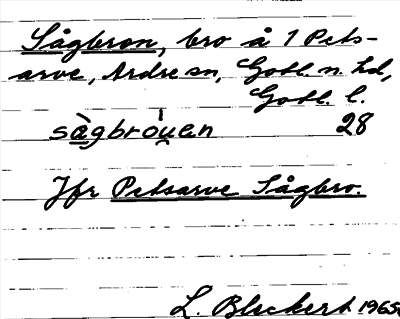 Sågbron, bro å 1 Pets-
arve, Ardre sn, Gotl. n. hd,
Gotl. l.
sågbròu̯en 28
Jfr Petsarve Sågbro.
L. Bleckert 1965